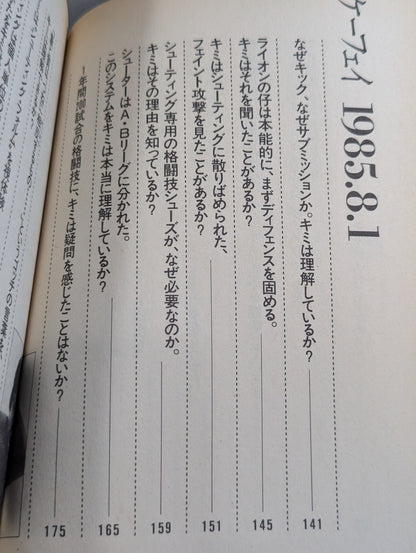 ケーフェイ 1985.8.1
なぜキック、なぜサブミッションか。キミは理解しているか？ 141
ライオンの仔は本能的に、まずディフェンスを固める。
キミはそれを聞いたことがあるか？ 145
キミはシューティングに散りばめられた、
フェイント攻撃を見たことがあるか？ 151
シューティング専用の格闘技シューズが、なぜ必要なのか。
キミはその理由を知っているか？ 159
シューターはA・Bリーグに分かれた。
このシステムをキミは本当に理解しているか？ 165
年間200試合の格闘技に、キミは疑問を感じたことはないか？ 175